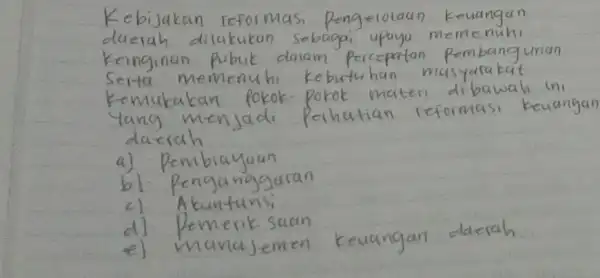 Kebijakan reformasi Pengelolaan keuangan
daerah dilakukan sebagai upaya memenuhi
keinginan Publik dalam Percepatan Pembangunan
Serta memenuhi kebutuhan masyarakat
Kemukakan Pokok-Pokok materi dibawah ini
Yang menjadi Perhatian reformasi keuangan
daerah
a) Pembiayaan
b) Penganggaran
c) Akuntansi
d) Pemeriksaan
e) manajemen keuangan daerah